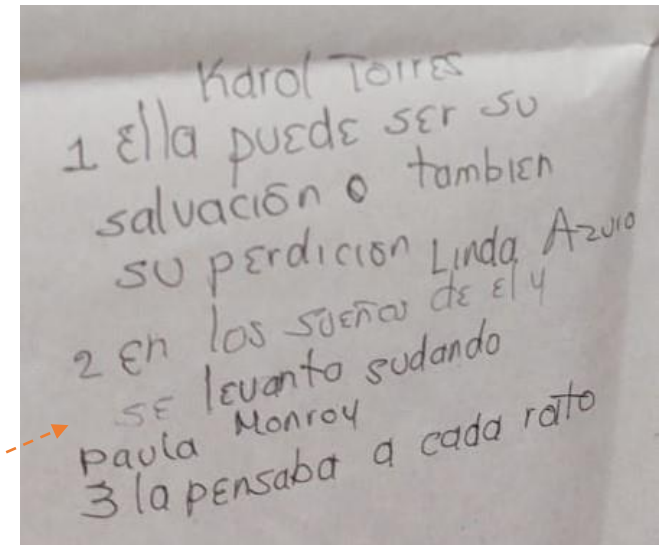 Karol Torres
1 Ella puede ser su
salvación o tambien
su perdicion Linda Azuro
2 en los sueños de el y
se levanto sudando
paula Monroy
3 la pensaba a cada rato